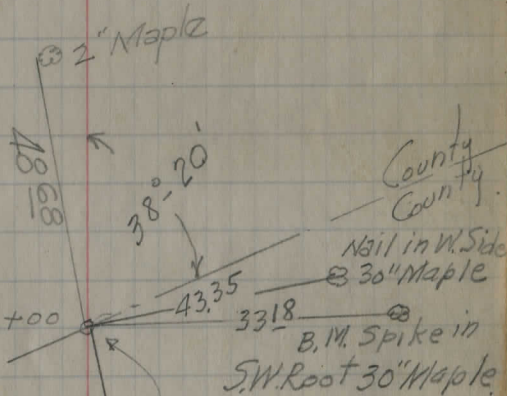 2" Maple
48 68
38°-20'
County
County
Nail in W. Side
30" Maple
43.35
+00
3318
B.M. Spike in
S.W. Root 30" Maple